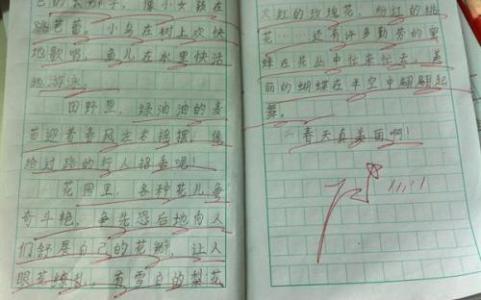 色的长裙子，像小女孩在
跳芭蕾。小鸟在树上欢快
地歌唱，鱼儿在水里快活
地游泳。
田野里，绿油油的麦
苗迎着春风左右摇摆，像
给过路的行人招着呢！
花园里，各种花儿争
奇斗艳，争先恐后地向人
们舒展自己的花瓣，让人
眼花缭乱，有雪白的梨花
火红的玫瑰花，粉红的桃
花……还有许多勤劳的蜜
蜂在花丛中忙来忙去，美
丽的蝴蝶在半空中翩翩起
舞。
春天真美丽啊！